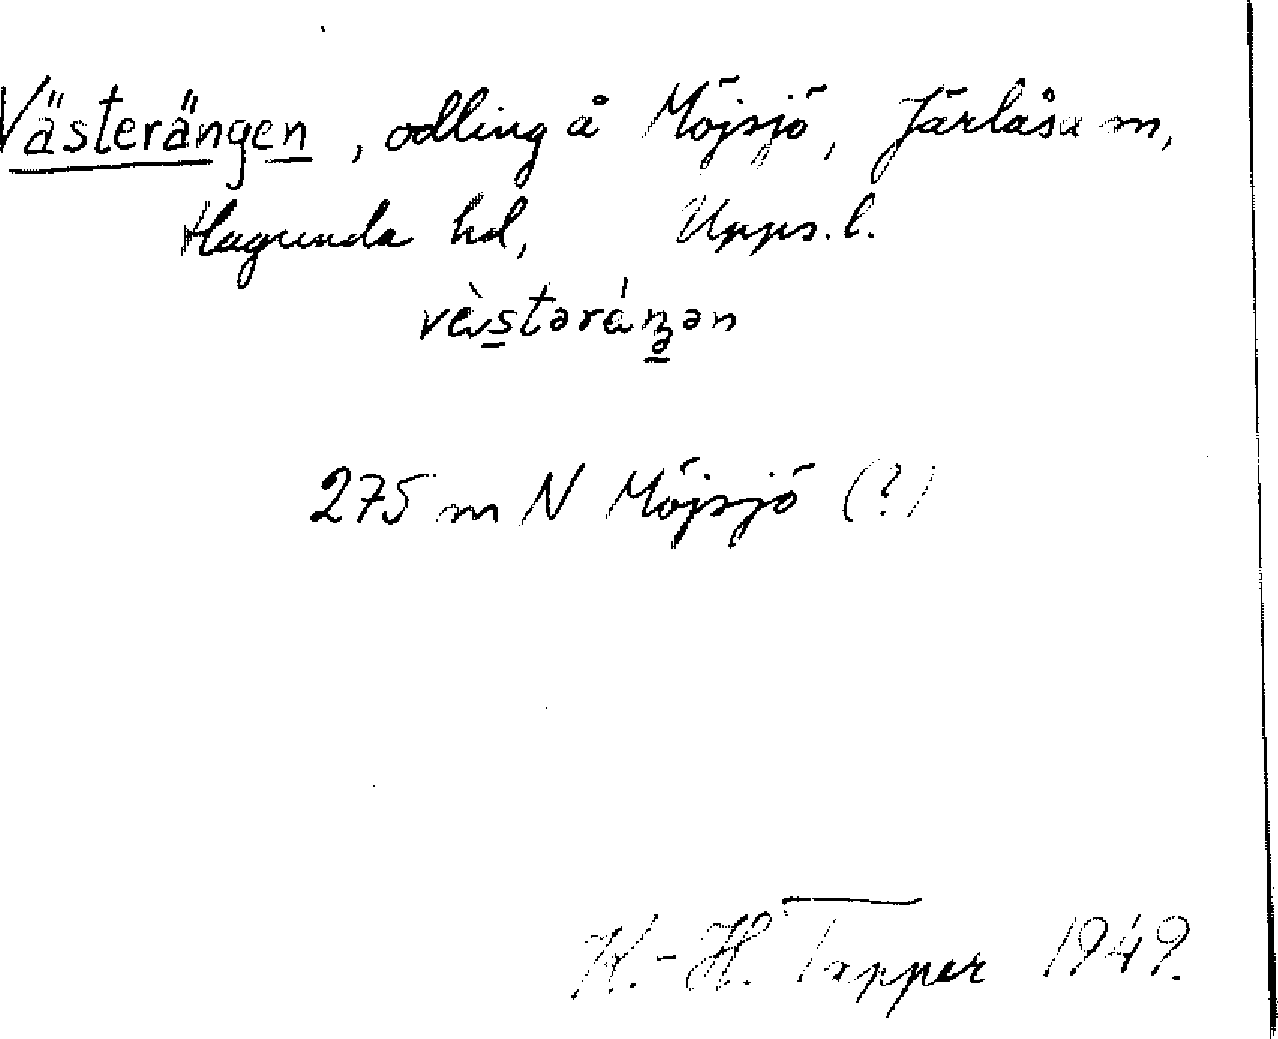 Västerängen, odling å Möjsjö, Järlåsa sn,
Hagunda hd, Upps. l.
vèstəráŋən
275 m N Möjsjö (?)
K.-H. Tapper 1949.